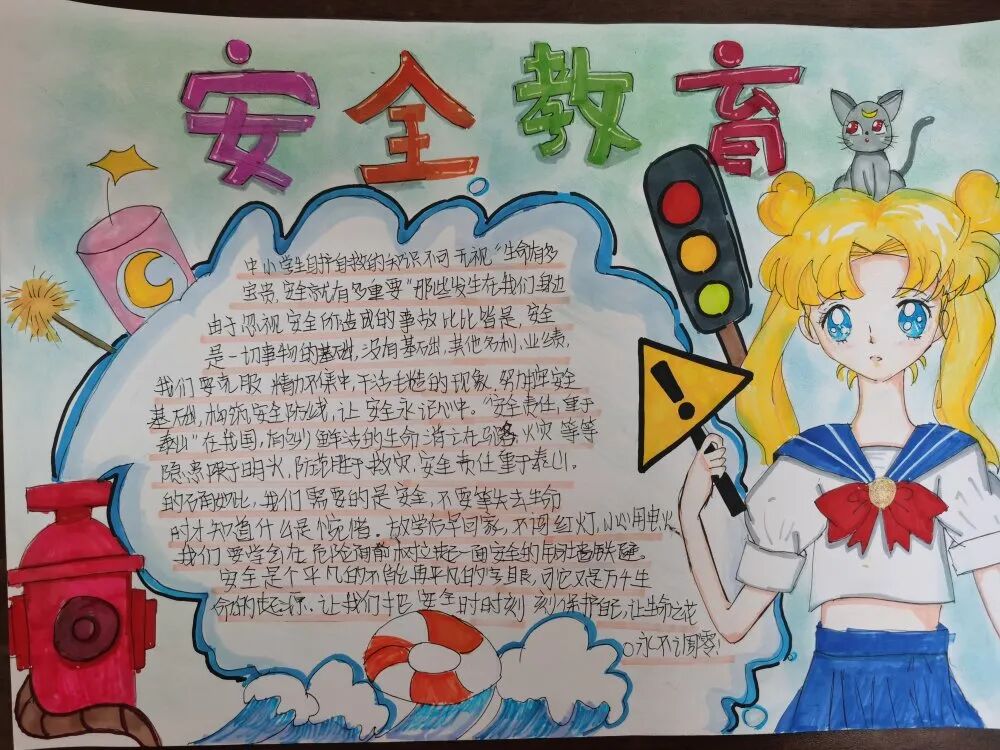 安全教育
中小学生自护自救的知识不可无视"生命有多
宝贵,安全就有多重要"那些发生在我们身边
由于忽视安全所造成的事故比比皆是,安全
是一切事物的基础,没有基础,其他名利,业绩,
我们要克服精力不集中,干活毛糙的现象.努力牢安全
基础,构筑安全防线,让安全永记心中。"安全责任,重于
泰山"在我国,有多少鲜活的生命消亡在火灾等等
隐患险于明火,防范胜于救灾,安全责任重于泰山。
的确如此,我们需要的是安全,不要等失去生命
时才知道什么是惋惜。放学后早回家,不闯红灯,小心用电火
我们要学会在危险面前树立起一面安全的铜墙铁壁。
安全是个平凡的不能再平凡的字眼,可它又是万千生
命的起源、让我们把安全时时刻刻保护自己,让生命之花
永不凋零!